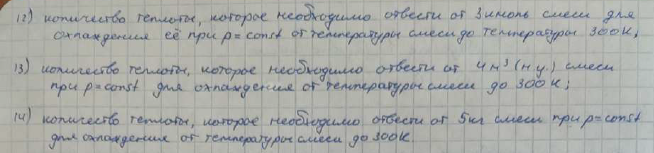 12) количество теплоты, которое необходимо отвести от 3 кмоль смеси для
охлаждения её при p=const от температуры смеси до температуры 300К;
13) количество теплоты, которое необходимо отвести от 4 м³ (н у) смеси
при p=const для охлаждения от температуры смеси до 300К;
14) количество теплоты, которое необходимо отвести от 5 кг смеси при p=const
для охлаждения от температуры смеси до 300К